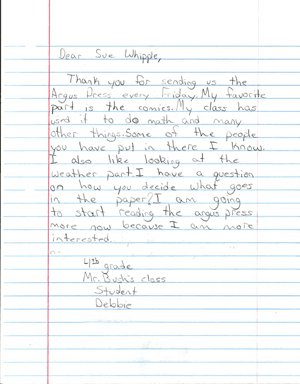 Dear Sue Whipple,
Thank you for sending us the
Argus Press every Friday. My favorite
part is the comics. My class has
used it to do math and many
other things. Some of the people
you have put in there I know.
I also like looking at the
weather part. I have a question
on how you decide what goes
in the paper? I am going
to start readig the argus press
more now because I am more
interested.
4th grade
Mr. Bush's class
Student
Debbie